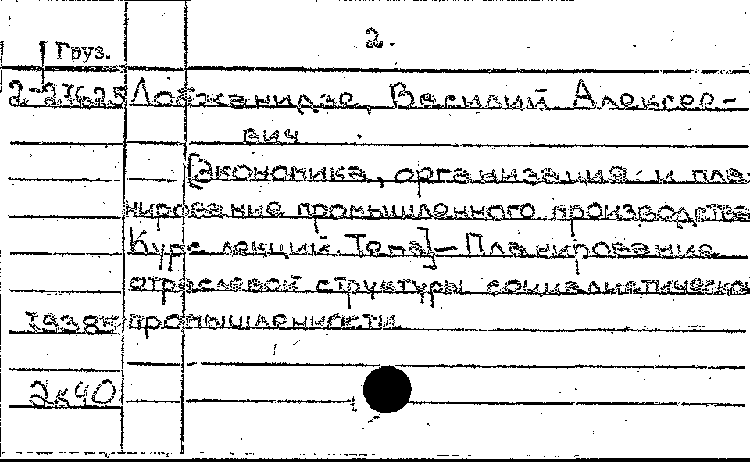 Груз. 2.
2-27625 Лобжанидзе, Василий Алексее-
вич
[Экономика, организация и пла-
нирование промышленного производства
Курс лекций. Тема] — Планирование
отраслевой структуры социалистической
промышленности.
2к40